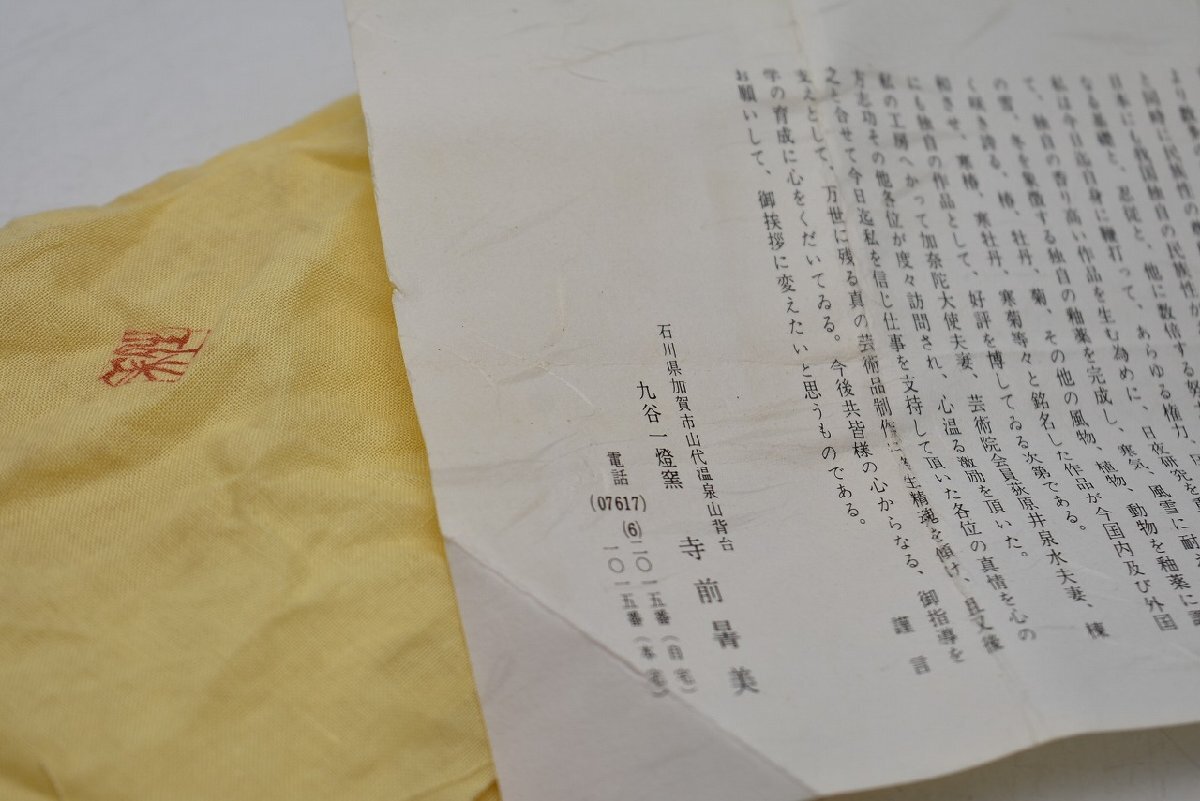 より数
と同時に民族性の
日本にも我国独自の民族性が
なる基礎と、忍従と、他に数倍する努
私は今日迄自身に鞭打って、あらゆる権力、
て、独自の香り高い作品を生む為めに、日夜研究を
の雪、冬を象徴する独自の釉薬を完成し、寒気、風雪に耐
く咲き誇る、椿、牡丹、菊、その他の風物、植物、動物を釉薬に
和させ、寒椿、寒牡丹、寒菊等々と銘名した作品が今国内及び外国
にも独自の作品として、好評を博してゐる次第である。
私の工房へかって加奈陀大使夫妻、芸術院会員荻原井泉水夫妻、棟
方志功その他各位が度々訪問され、心温る激励を頂いた。
之と合せて今日迄私を信じ仕事を支持して頂いた各位の真情を心の
支えとして、万世に残る真の芸術品制作に生精魂を傾け、且又後
学の育成に心をくだいてゐる。今後共皆様の心からなる、御指導を
お願いして、御挨拶に変えたいと思うものである。
謹言
石川県加賀市山代温泉山背台
九谷一燈窯
寺前 美
電話(07617)(6)二〇一五番(自宅)
一〇一五番(本宅)